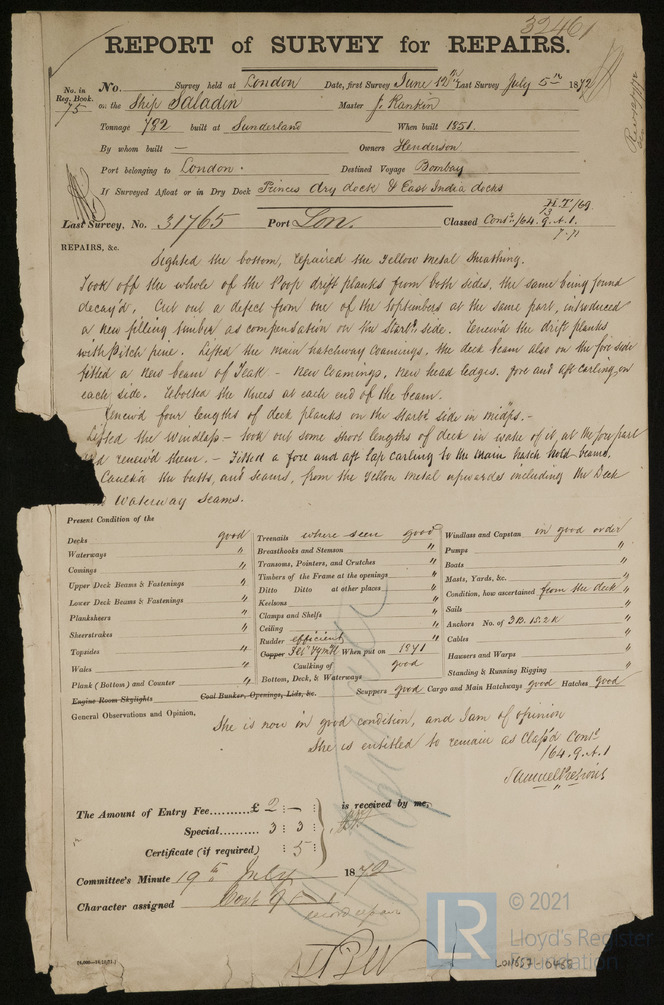 32461
REPORT of SURVEY for REPAIRS.
No. in Reg. Book. No. Survey held at London Date, first Survey June 12th Last Survey July 5th 1872
75 on the Ship Saladin Master J. Rankin
Tonnage 782 built at Sunderland When built 1851.
By whom built — Owners Henderson
Port belonging to London. Destined Voyage Bombay
If Surveyed Afloat or in Dry Dock Princes dry dock & East India docks
Last Survey, No. 31765 Port Lon. Classed Contd 164. 9. A.1.
7.71
REPAIRS, &c.
Sighted the bottom, repaired the Yellow Metal Sheathing.
Took off the whole of the Poop drift planks from both sides, the same being found
decay'd. Cut out a defect from one of the toptimbers at the same part, introduced
a new filling timber as compensation on the Starbd. side. Renew'd the drift planks
with Pitch pine. Lifted the main hatchway Coamings, the deck beam also on the fore side
fitted a New beam of Teak - New Coamings, New head ledges. fore and aft carling on
each side. Rebolted the Knees at each end of the beam.
Renew'd four lengths of deck planks on the Starbd side in midps.-
Lifted the Windlass - took out some short lengths of deck in wake of it, at the fore part
and renew'd them. - Fitted a fore and aft lap carling to the main hatch hold beams.
Caulk'd the butts, and seams, from the Yellow Metal upwards including the Deck
Waterway Seams.
Present Condition of the
Decks good
Waterways "
Comings "
Upper Deck Beams & Fastenings "
Lower Deck Beams & Fastenings "
Planksheers "
Sheerstrakes "
Topsides "
Wales "
Plank (Bottom) and Counter "
Engine Room Skylights Coal Bunker, Openings, Lids, &c.
Treenails where seen good
Breasthooks and Stemson "
Transoms, Pointers, and Crutches "
Timbers of the Frame at the openings "
Ditto Ditto at other places "
Keelsons "
Clamps and Shelfs "
Ceiling "
Rudder efficient
Copper When put on 1871
Caulking of good
Bottom, Deck, & Waterways
Windlass and Capstan in good order
Pumps "
Boats "
Masts, Yards, &c. "
Condition, how ascertained from the deck
Sails "
Anchors No. of 3B. 1S. 2K "
Cables "
Hawsers and Warps "
Standing & Running Rigging "
Scuppers good Cargo and Main Hatchways good Hatches good
General Observations and Opinion,
She is now in good condition, and I am of opinion
She is entitled to remain as Class'd Contd
164. 9. A.1
The Amount of Entry Fee..........£ 2 : — : is received by me,
Special......... 3 : 3 :
Certificate (if required) : 5 :
Committee's Minute 19th July 1872
Character assigned Contd 9 - 1
© 2021
LR
Lloyd's Register
Foundation